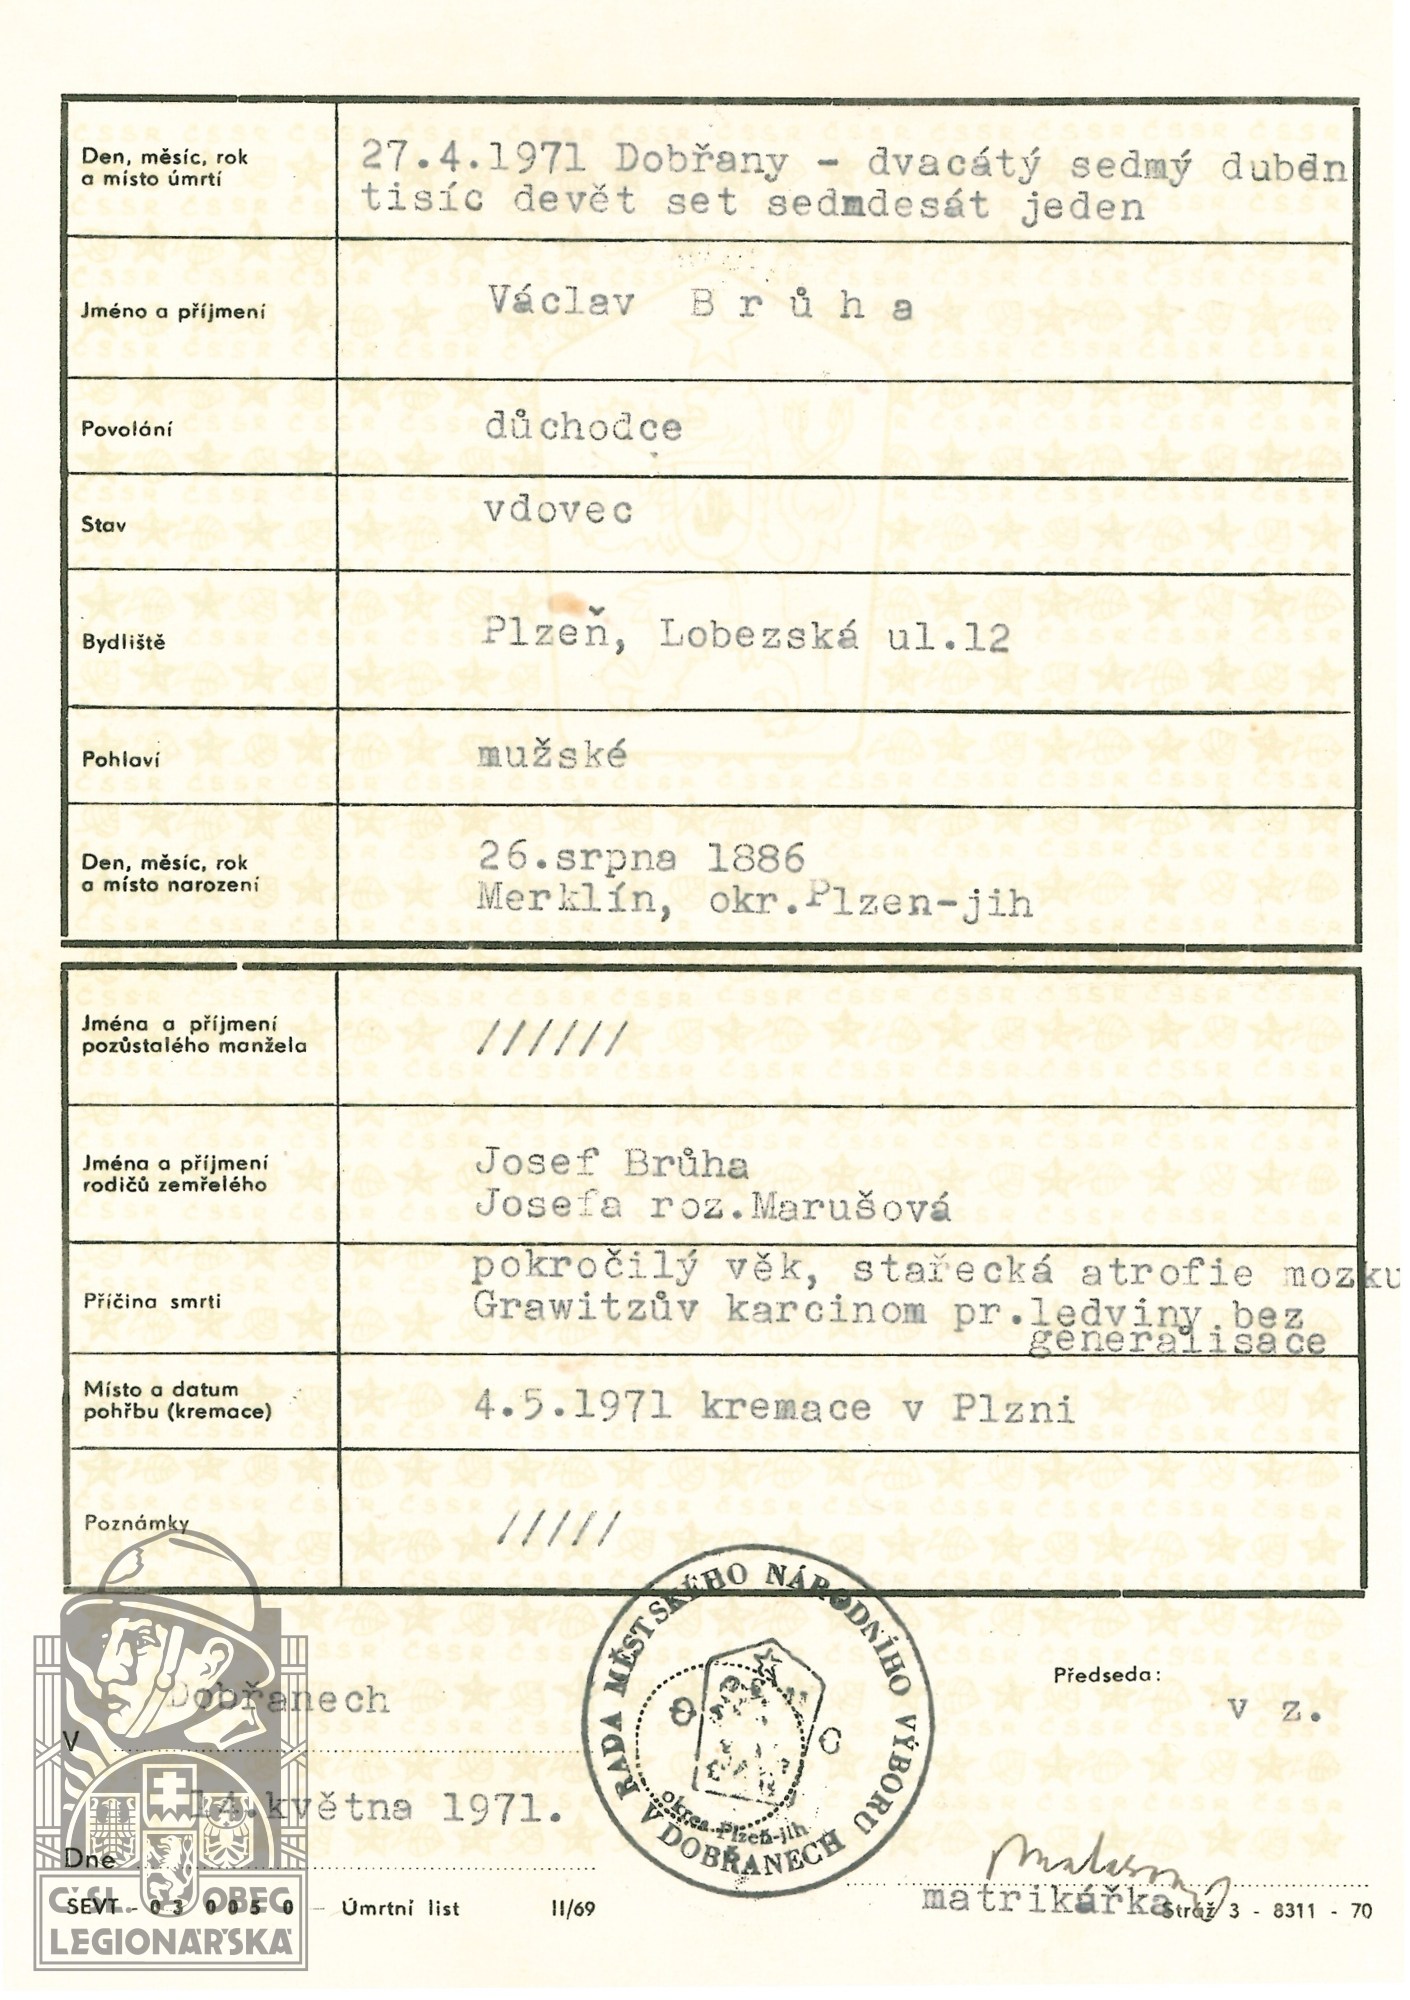 Den, měsíc, rok
a místo úmrtí
27.4.1971 Dobřany - dvacátý sedmý duben
tisíc devět set sedmdesát jeden
Jméno a příjmení
Václav B r ů h a
Povolání
důchodce
Stav
vdovec
Bydliště
Plzeň, Lobezská ul.12
Pohlaví
mužské
Den, měsíc, rok
a místo narození
26.srpna 1886
Merklín, okr.Plzen-jih
Jména a příjmení
pozůstalého manžela
//////
Jména a příjmení
rodičů zemřelého
Josef Brůha
Josefa roz.Marušová
Příčina smrti
pokročilý věk, stařecká atrofie mozku
Grawitzův karcinom pr.ledviny bez
generalisace
Místo a datum
pohřbu (kremace)
4.5.1971 kremace v Plzni
Poznámky
/////
RADA MĚSTSKÉHO NÁRODNÍHO VÝBORU
V DOBŘANECH
okres Plzeň-jih
Předseda:
v z.
V Dobřanech
Dne 14.května 1971.
matrikářka
SEVT - 03 005 0 - Úmrtní list II/69
Stráž 3 - 8311 - 70
ČSL. OBEC
LEGIONÁŘSKÁ